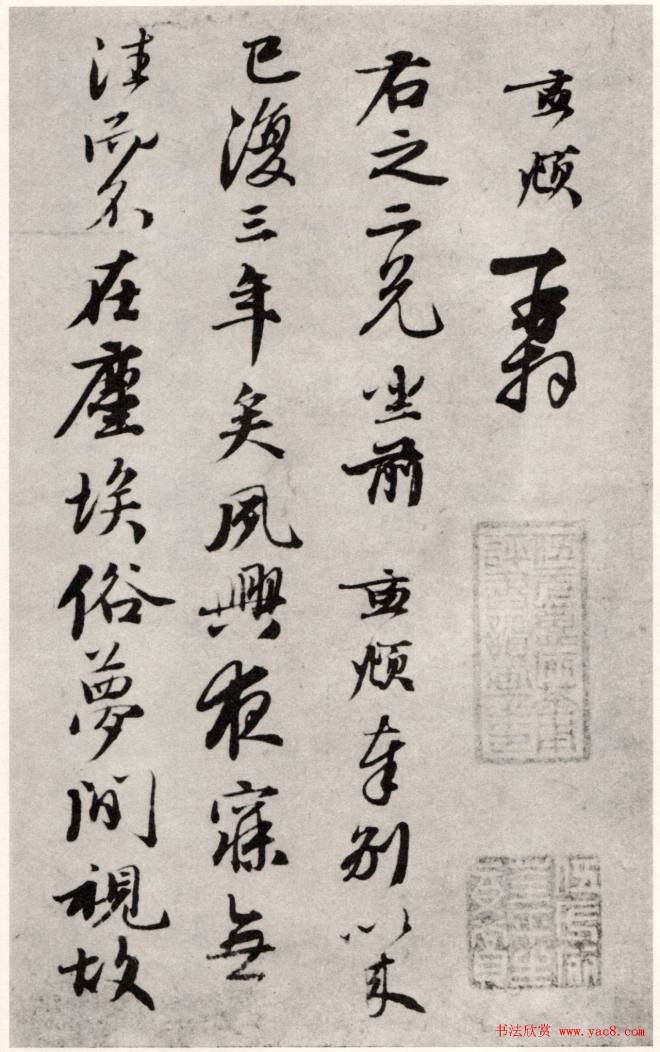 孟頫再拜
右之二兄坐前孟頫奉別以來
已復三年矣夙興夜寐無
往而不在塵埃俗夢間視故
书法欣赏 www.yac8.com